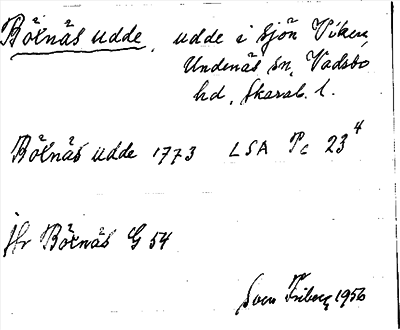 Bölnäs udde, udde i sjön Viken,
Undenäs sn, Vadsbo
hd, Skarab. l.
Bölnäs udde 1773 LSA Pc 23⁴
Jfr Bölnäs G 54
Sven Friberg 1956